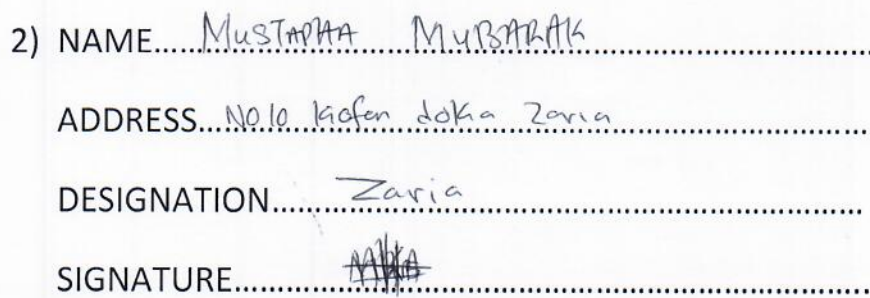 2) NAME.....MUSTAPHA MUBARAK.....
ADDRESS...No 10 kofan doka Zaria.....
DESIGNATION.....Zaria.....
SIGNATURE.....